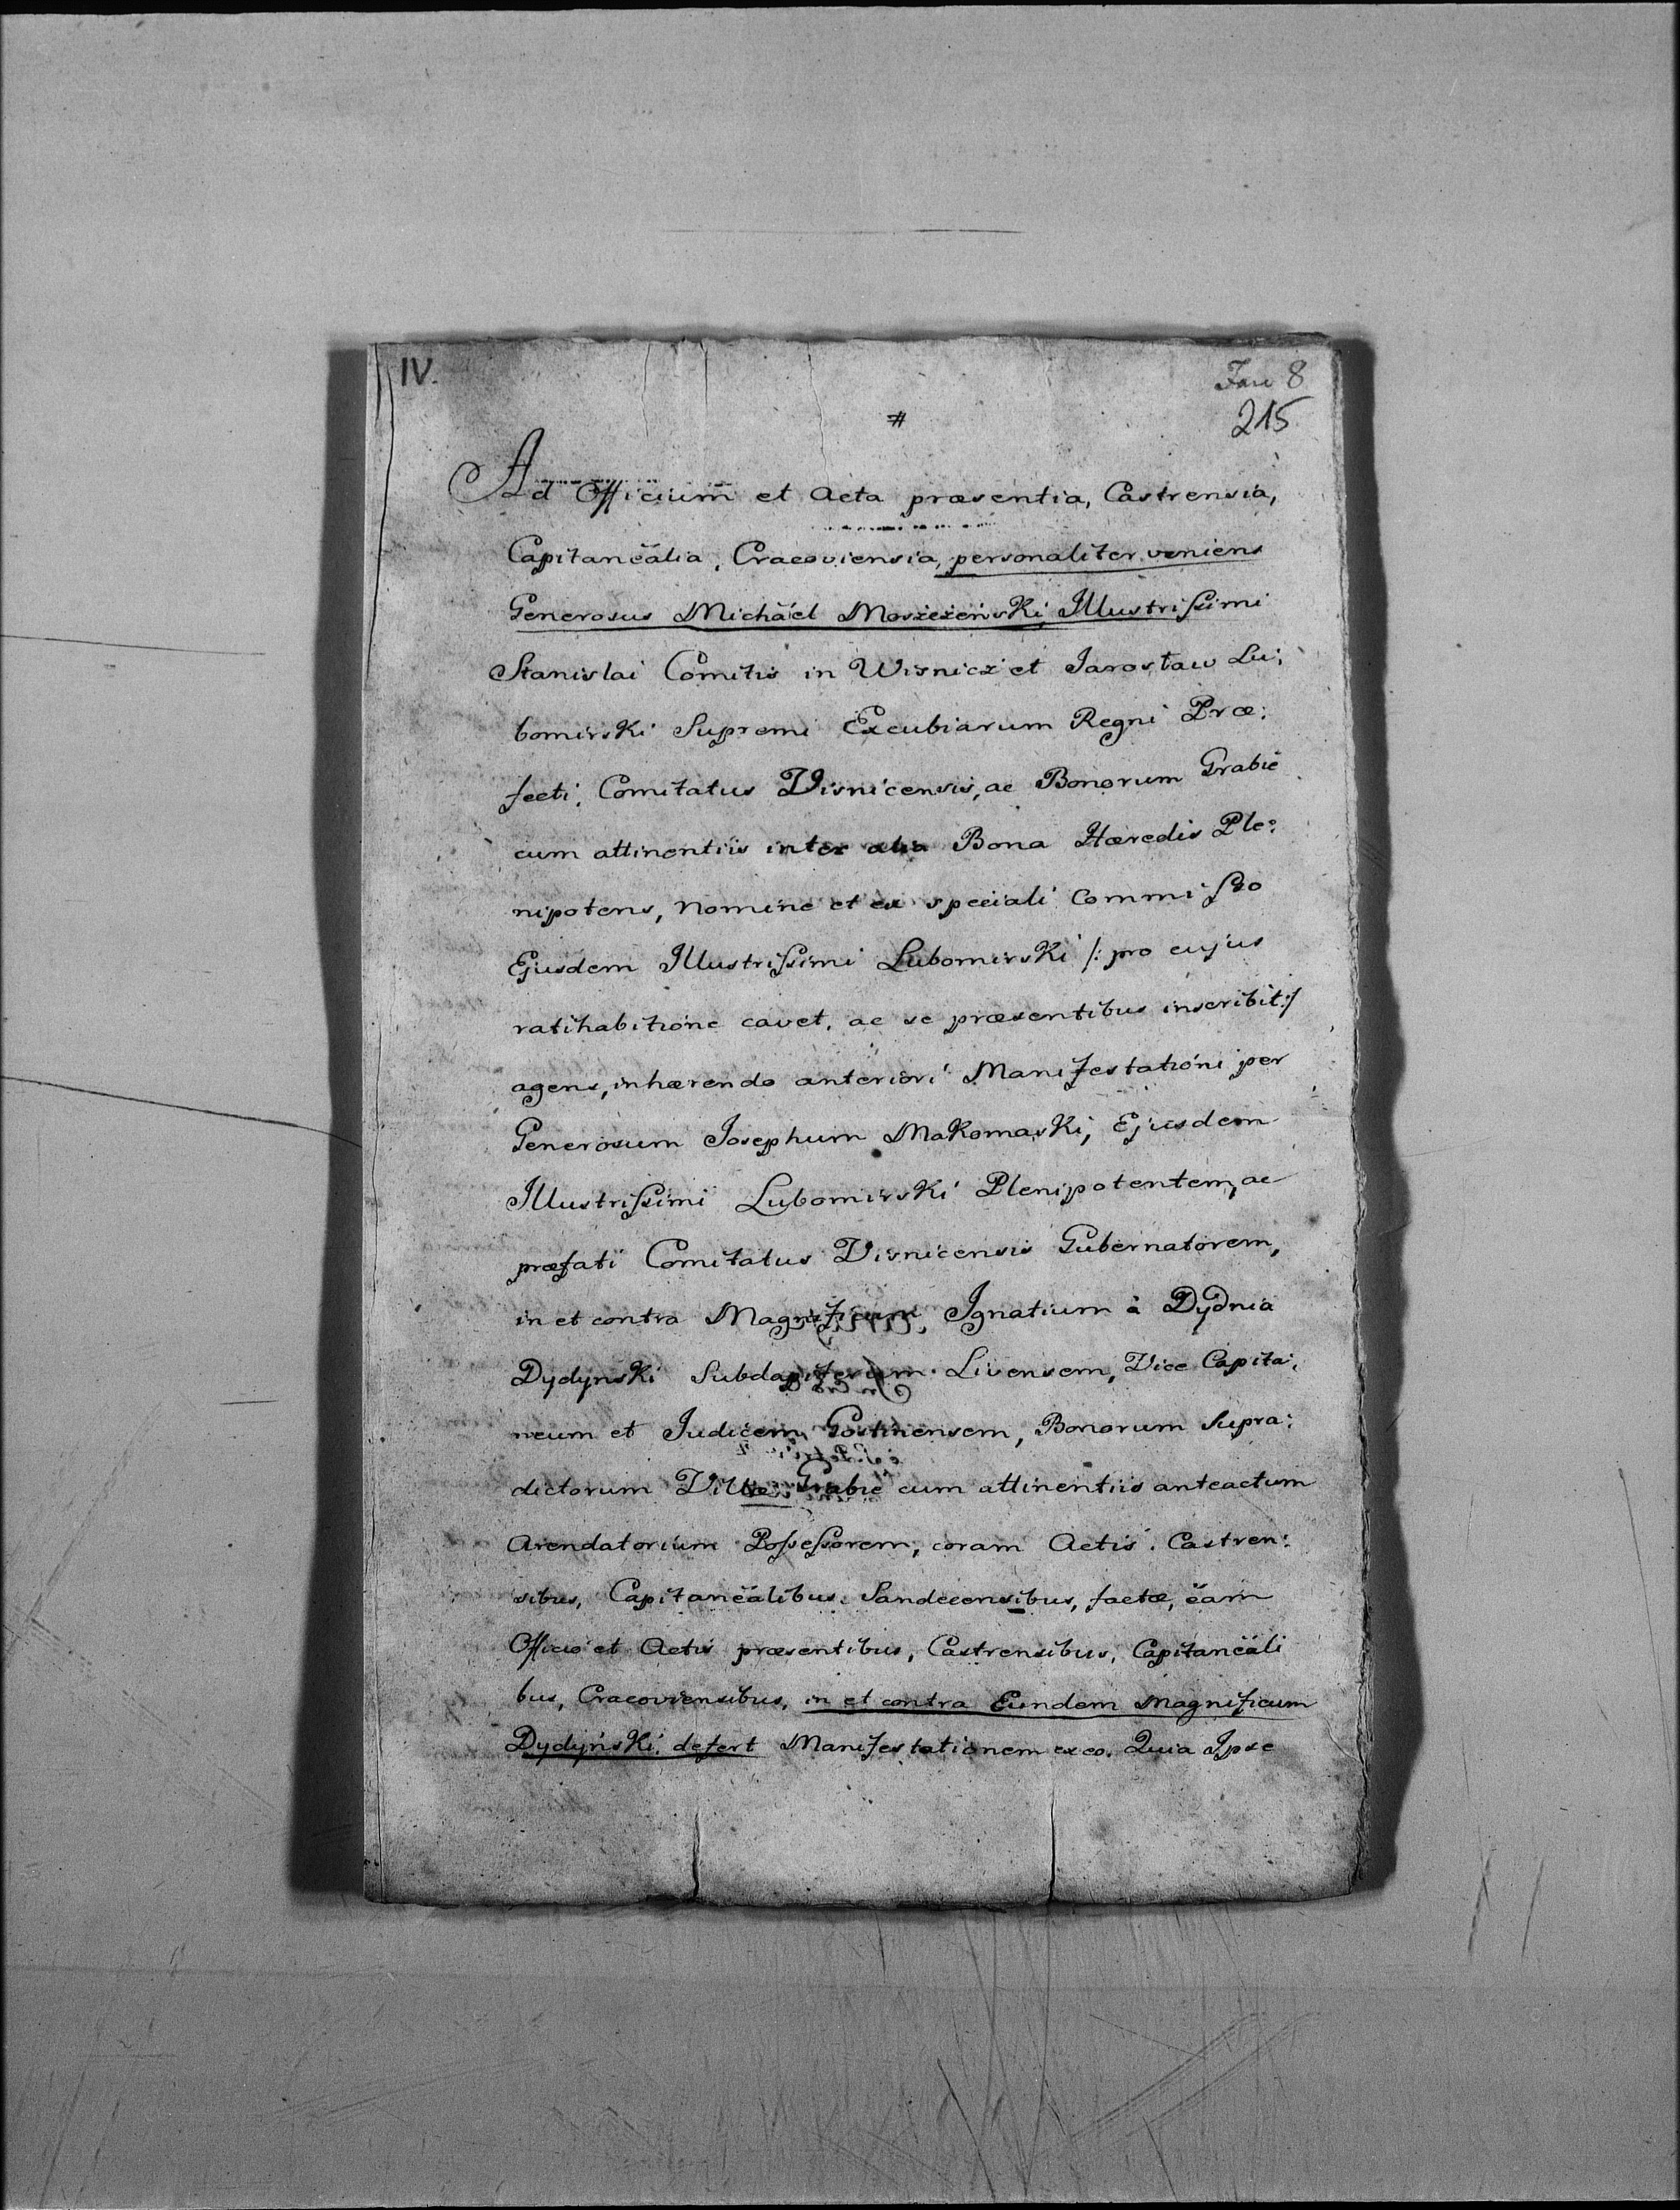 IV.
Fasc 8
215
#
Ad Officium et Acta præsentia, Castrensia,
Capitanëalia, Cracoviensia, personaliter veniens
Generosus Michäel Moszczeński, Illustrissimi
Stanislai Comitis in Wisnicz et Jarosław Lu:
bomirski Supremi Excubiarum Regni Præ:
fecti, Comitatus Visnicensis, ac Bonorum Grabie
cum attinentiis inter alia Bona Hæredis Ple:
nipotens, Nomine et ex speciali Commisso
Ejusdem Illustrissimi Lubomirski /: pro cujus
ratihabitione cavet, ac se præsentibus inscribit :/
agens, inhærendo anteriori Manifestationi per
Generosum Josephum Makomaski, Ejusdem
Illustrissimi Lubomirski Plenipotentem, ac
præfati Comitatus Visnicensis Gubernatorem,
in et contra Magnificum Ignatium à Dydnia
Dydyński Subdapiferum Livensem, Vice Capita:
neum et Judicem Gostinensem, Bonorum supra:
dictorum Villæ Grabie cum attinentiis anteactum
Arendatorium Possessorem, coram Actis Castren:
sibus, Capitanëalibus Sandecensibus, factæ, ëam
Officio et Actis præsentibus, Castrensibus, Capitanëali
bus, Cracoviensibus, in et contra Eundem Magnificum
Dydyński defert Manifestationem ex eo. Quia Ipse